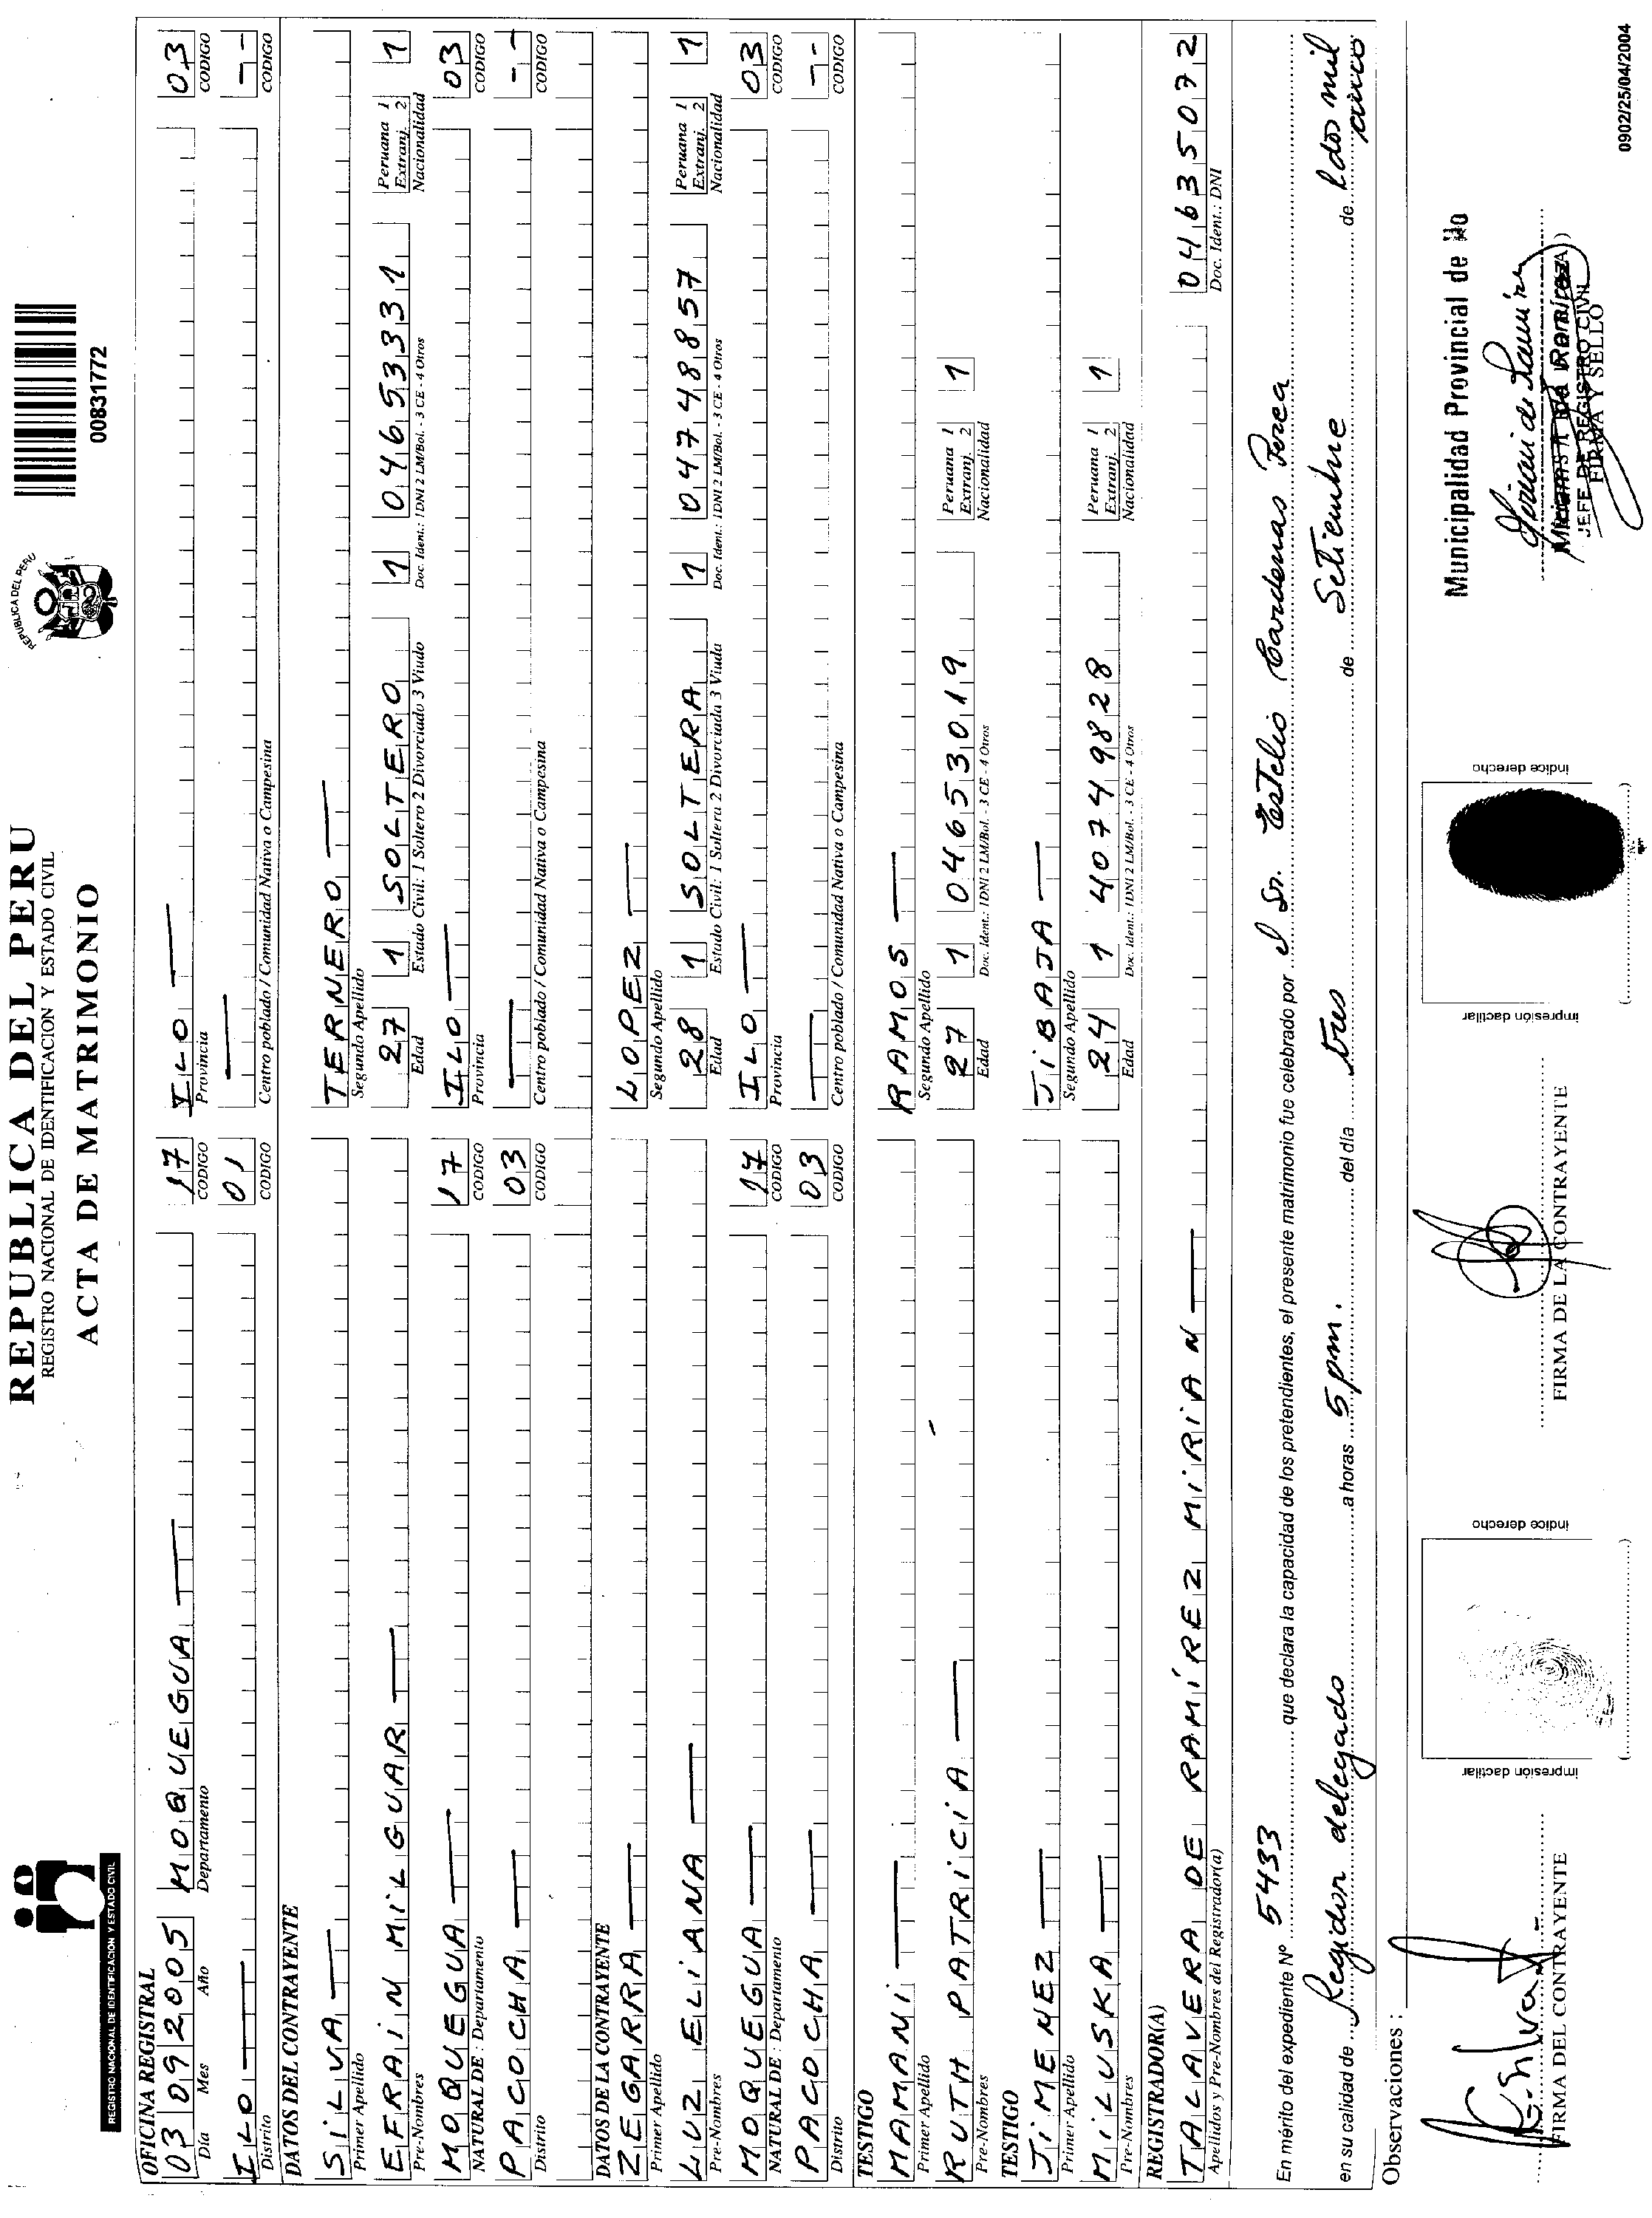 REPUBLICA DEL PERU
REGISTRO NACIONAL DE IDENTIFICACION Y ESTADO CIVIL
ACTA DE MATRIMONIO
REGISTRO NACIONAL DE IDENTIFICACION Y ESTADO CIVIL
REPUBLICA DEL PERU
00831772
OFICINA REGISTRAL
03 09 2005 MOQUEGUA 17 ILO 03
Día Mes Año Departamento CODIGO Provincia CODIGO
ILO 01 --
Distrito CODIGO Centro poblado / Comunidad Nativa o Campesina CODIGO
DATOS DEL CONTRAYENTE
SILVA TERNERO
Primer Apellido Segundo Apellido
EFRAIN MILGUAR 27 1 SOLTERO 1 04653331 Peruana 1 Extranj. 2 1
Pre-Nombres Edad Estado Civil: 1 Soltero 2 Divorciado 3 Viudo Doc. Ident.: 1DNI 2 LM/Bol. - 3 CE - 4 Otros Nacionalidad
MOQUEGUA 17 ILO 03
NATURAL DE : Departamento CODIGO Provincia CODIGO
PACOCHA 03 --
Distrito CODIGO Centro poblado / Comunidad Nativa o Campesina CODIGO
DATOS DE LA CONTRAYENTE
ZEGARRA LOPEZ
Primer Apellido Segundo Apellido
LUZ ELIANA 28 1 SOLTERA 1 04748857 Peruana 1 Extranj. 2 1
Pre-Nombres Edad Estado Civil: 1 Soltera 2 Divorciada 3 Viuda Doc. Ident.: 1DNI 2 LM/Bol. - 3 CE - 4 Otros Nacionalidad
MOQUEGUA 17 ILO 03
NATURAL DE : Departamento CODIGO Provincia CODIGO
PACOCHA 03 --
Distrito CODIGO Centro poblado / Comunidad Nativa o Campesina CODIGO
TESTIGO
MAMANI RAMOS
Primer Apellido Segundo Apellido
RUTH PATRICIA 27 1 04653019 Peruana 1 Extranj. 2 1
Pre-Nombres Edad Doc. Ident.: 1DNI 2 LM/Bol. - 3 CE - 4 Otros Nacionalidad
TESTIGO
JIMENEZ JIBAJA
Primer Apellido Segundo Apellido
MILUSKA 24 1 40749828 Peruana 1 Extranj. 2 1
Pre-Nombres Edad Doc. Ident.: 1DNI 2 LM/Bol. - 3 CE - 4 Otros Nacionalidad
REGISTRADOR(A)
TALAVERA DE RAMÍREZ MIRIAN 04635072
Apellidos y Pre-Nombres del Registrador(a) Doc. Ident.: DNI
En mérito del expediente Nº 5433 que declara la capacidad de los pretendientes, el presente matrimonio fue celebrado por el Sr. Estelio Cardenas Perea
en su calidad de Regidor delegado a horas 5 pm. del día tres de Setiembre de dos mil cinco
Observaciones :
Municipalidad Provincial de Ilo
FIRMA DEL CONTRAYENTE
impresión dactilar
índice derecho
FIRMA DE LA CONTRAYENTE
impresión dactilar
índice derecho
JEFE DE REGISTRO CIVIL
FIRMA Y SELLO
0902/25/04/2004